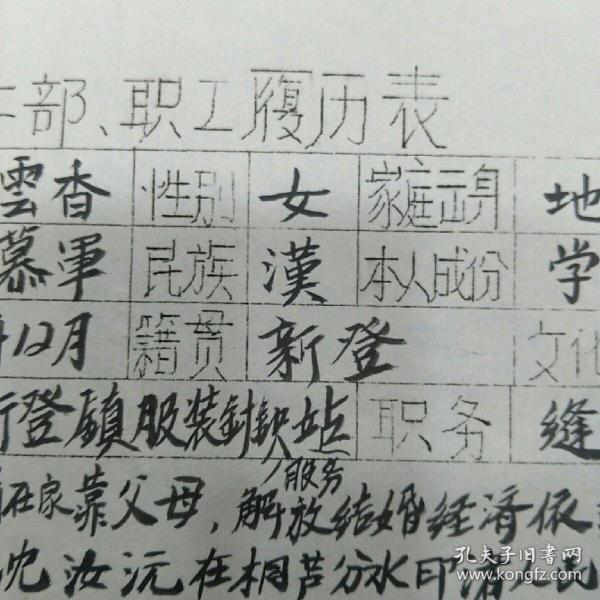 部、职工履历表
雲香 性别 女 家庭出身 地
慕軍 民族 漢 本人成份 学
12月 籍贯 新登 文化
登鎮服装針織站 职务 缝
服务
在家靠父母，解放结婚经済依
沈汝沅在桐芦分水印
孔夫子旧书网
www.kongfz.com